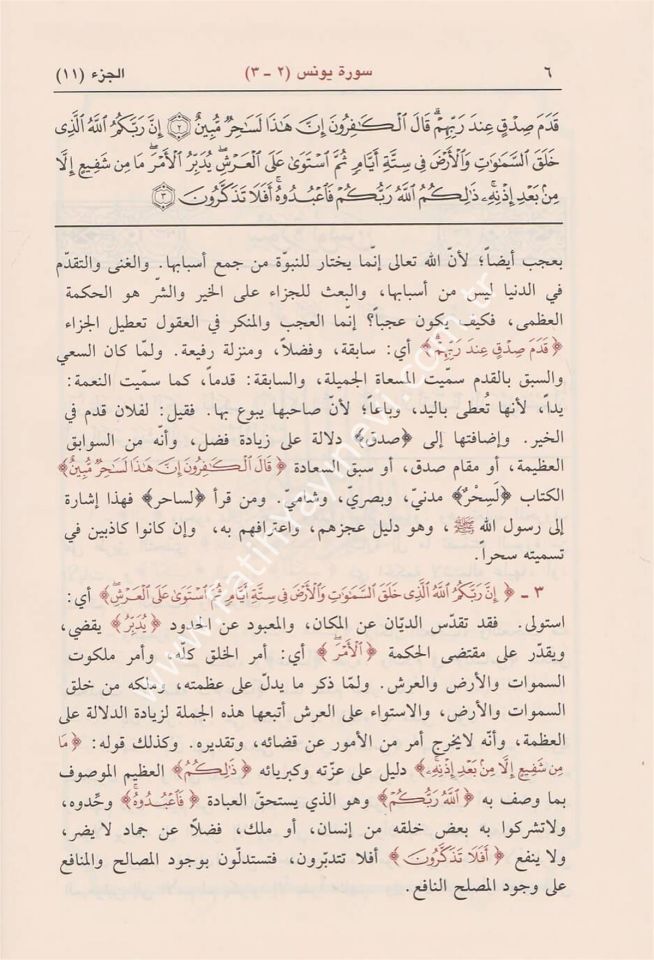 ٦ سورة يونس (٢ - ٣) الجزء (١١)
قَدَمَ صِدْقٍ عِندَ رَبِّهِمْ ۗ قَالَ ٱلْكَـٰفِرُونَ إِنَّ هَـٰذَا لَسَـٰحِرٌ مُّبِينٌ ﴿٢﴾ إِنَّ رَبَّكُمُ ٱللَّهُ ٱلَّذِى
خَلَقَ ٱلسَّمَـٰوَٰتِ وَٱلْأَرْضَ فِى سِتَّةِ أَيَّامٍ ثُمَّ ٱسْتَوَىٰ عَلَى ٱلْعَرْشِ ۖ يُدَبِّرُ ٱلْأَمْرَ ۖ مَا مِن شَفِيعٍ إِلَّا
مِنۢ بَعْدِ إِذْنِهِۦ ۚ ذَٰلِكُمُ ٱللَّهُ رَبُّكُمْ فَٱعْبُدُوهُ ۚ أَفَلَا تَذَكَّرُونَ ﴿٣﴾
بعجب أيضاً؛ لأنّ الله تعالى إنّما يختار للنبوّة من جمع أسبابها. والغنى والتقدّم
في الدنيا ليس من أسبابها، والبعث للجزاء على الخير والشرّ هو الحكمة
العظمى، فكيف يكون عجباً؟ إنّما العجب والمنكر في العقول تعطيل الجزاء
﴿قَدَمَ صِدْقٍ عِندَ رَبِّهِمْ﴾ أي: سابقة، وفضلاً، ومنزلة رفيعة. ولمّا كان السعي
والسبق بالقدم سمّيت المسعاة الجميلة، والسابقة: قدماً، كما سمّيت النعمة:
يداً، لأنها تُعطى باليد، وباعاً؛ لأنّ صاحبها يبوع بها. فقيل: لفلان قدم في
الخير. وإضافتها إلى ﴿صدق﴾ دلالة على زيادة فضل، وأنه من السوابق
العظيمة، أو مقام صدق، أو سبق السعادة ﴿قَالَ ٱلْكَـٰفِرُونَ إِنَّ هَـٰذَا لَسَـٰحِرٌ مُّبِينٌ﴾
الكتاب ﴿لَسِحْرٌ﴾ مدنيّ، وبصريّ، وشاميّ. ومن قرأ ﴿لساحر﴾ فهذا إشارة
إلى رسول الله ﷺ، وهو دليل عجزهم، واعترافهم به، وإن كانوا كاذبين في
تسميته سحراً.
٣ - ﴿إِنَّ رَبَّكُمُ ٱللَّهُ ٱلَّذِى خَلَقَ ٱلسَّمَـٰوَٰتِ وَٱلْأَرْضَ فِى سِتَّةِ أَيَّامٍ ثُمَّ ٱسْتَوَىٰ عَلَى ٱلْعَرْشِ﴾ أي:
استولى. فقد تقدّس الديّان عن المكان، والمعبود عن الحدود ﴿يُدَبِّرُ﴾ يقضي،
ويقدّر على مقتضى الحكمة ﴿ٱلْأَمْرَ﴾ أي: أمر الخلق كلّه، وأمر ملكوت
السموات والأرض والعرش. ولمّا ذكر ما يدلّ على عظمته، وملكه من خلق
السموات والأرض، والاستواء على العرش أتبعها هذه الجملة لزيادة الدلالة على
العظمة، وأنّه لايخرج أمر من الأمور عن قضائه، وتقديره. وكذلك قوله: ﴿مَا
مِن شَفِيعٍ إِلَّا مِنۢ بَعْدِ إِذْنِهِۦ﴾ دليل على عزّته وكبريائه ﴿ذَٰلِكُمُ﴾ العظيم الموصوف
بما وصف به ﴿ٱللَّهُ رَبُّكُمْ﴾ وهو الذي يستحقّ العبادة ﴿فَٱعْبُدُوهُ﴾ وحّدوه،
ولاتشركوا به بعض خلقه من إنسان، أو ملك، فضلاً عن جماد لا يضر،
ولا ينفع ﴿أَفَلَا تَذَكَّرُونَ﴾ أفلا تتدبّرون، فتستدلّون بوجود المصالح والمنافع
على وجود المصلح النافع.
www.fatihyayinevi.com.tr